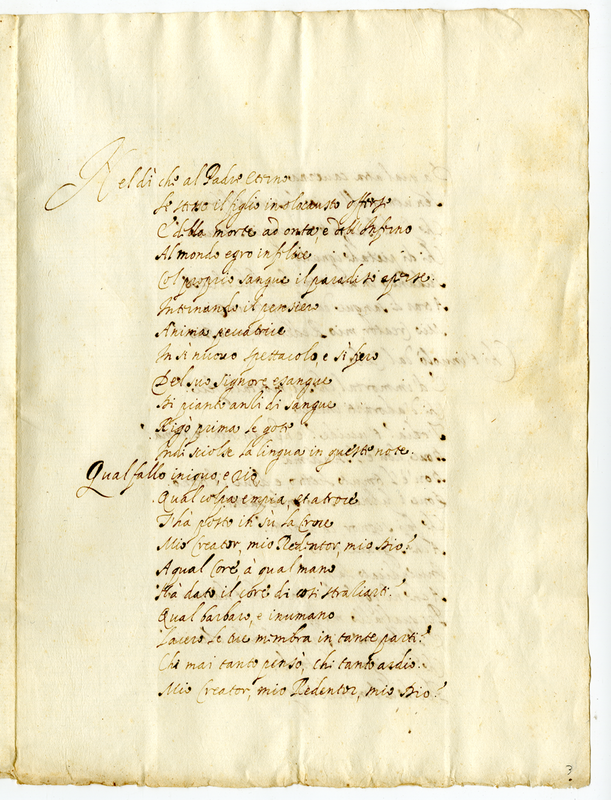 Nel dì che al Padre Eterno
Se stesso il figlio in olocausto offerse
E della morte ad onta, e dell'Inferno
Al mondo egro infelice
Col proprio sangue il paradiso aperse.
Internando il pensiero
Anima peccatrice
In sì nuovo spettacolo, e sì fiero
Del suo Signore esangue
Di pianto anzi di sangue
Rigò prima le gote
Indi sciolse la lingua in queste note.
Qual fallo iniquo, e rio
Qual colpa empia, et atroce
T'hà posto in sù la Croce
Mio Creator, mio Redentor, mio Dio?
A qual Core à qual mano
Hà dato il core di così stratiarti?
Qual barbaro, e inumano
Lacerò le tue membra in tante parti?
Chi mai tanto pensò, chi tanto ardio.
Mio Creator, mio Redentor, mio Dio?
3